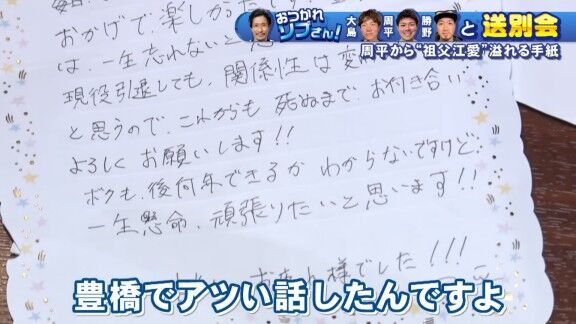 おつかれ
ソブさん!
大島
周平
勝野
と
送別会
周平から“祖父江愛”溢れる手紙
おかげで楽し
は、一生忘れないと思
現役引退しても、関係性は変
と思うので、これからも 死ぬまで、お付き合い
よろしく お願いします!!
ボクも、後何年できるか わからないですけど、
一生懸命、頑張りたいと思います!!
様でした!!!
豊橋でアツい話したんですよ